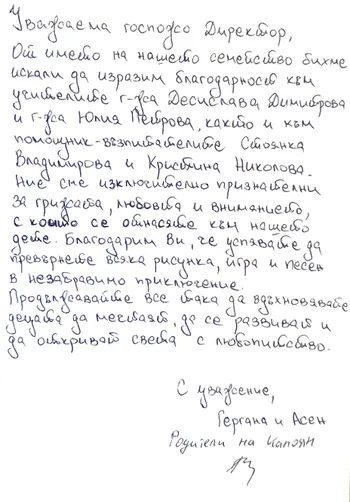 Уважаема госпожо Директор,
От името на нашето семейство бихме
искали да изразим благодарност към
учителите г-жа Десислава Димитрова
и г-жа Юлия Петрова, както и към
помощник-възпитателите Стоянка
Владимирова и Кристина Николова.
Ние сме изключително признателни
за грижата, любовта и вниманието,
с които се отнасяте към нашето
дете. Благодарим Ви, че успявате да
превърнете всяка рисунка, игра и песен
в незабравимо приключение.
Продължавайте все така да вдъхновявате
децата да мечтаят, да се развиват и
да откриват света с любопитство.
С уважение,
Гергана и Асен
Родители на Калоян